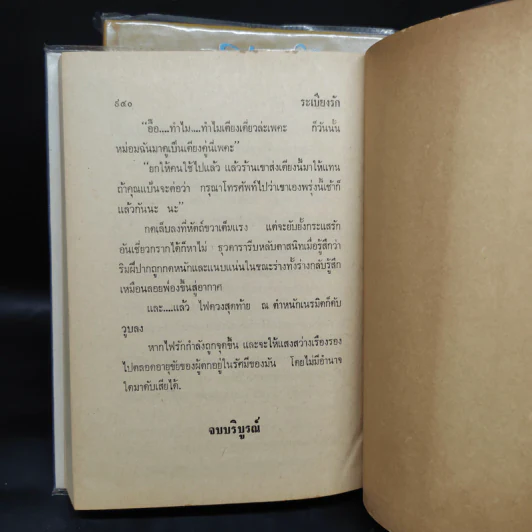 ๙๔๐ ระเบียงรัก
“อื๊อ....ทำไม....ทำไมเตียงเดี่ยวล่ะเพคะ ก็วันนั้น
หม่อมฉันมาดูเป็นเตียงคู่นี่เพคะ”
“ยกให้คนใช้ไปแล้ว แล้วร้านเขาส่งเตียงนี้มาให้แทน
ถ้าคุณแป้นจะต่อว่า กรุณาโทรศัพท์ไปว่าเขาเองพรุ่งนี้เช้าก็
แล้วกันนะ นะ”
กดเล็บลงที่หัตถ์ขวาเต็มแรง แต่จะยับยั้งกระแสรัก
อันเชี่ยวกรากได้ก็หาไม่ ธุวดารารีบหลับตาสนิทเมื่อรู้สึกว่า
ริมฝีปากถูกกดหนักและแนบแน่นในขณะร่างทั้งร่างกลับรู้สึก
เหมือนลอยฟ่องขึ้นสู่อากาศ
และ....แล้ว ไฟดวงสุดท้าย ณ ตำหนักเนรมิตก็ดับ
วูบลง
หากไฟรักกำลังถูกจุดขึ้น และจะให้แสงสว่างเรืองรอง
ไปตลอดอายุขัยของผู้ตกอยู่ในรัศมีของมัน โดยไม่มีอำนาจ
ใดมาดับเสียได้.
จบบริบูรณ์